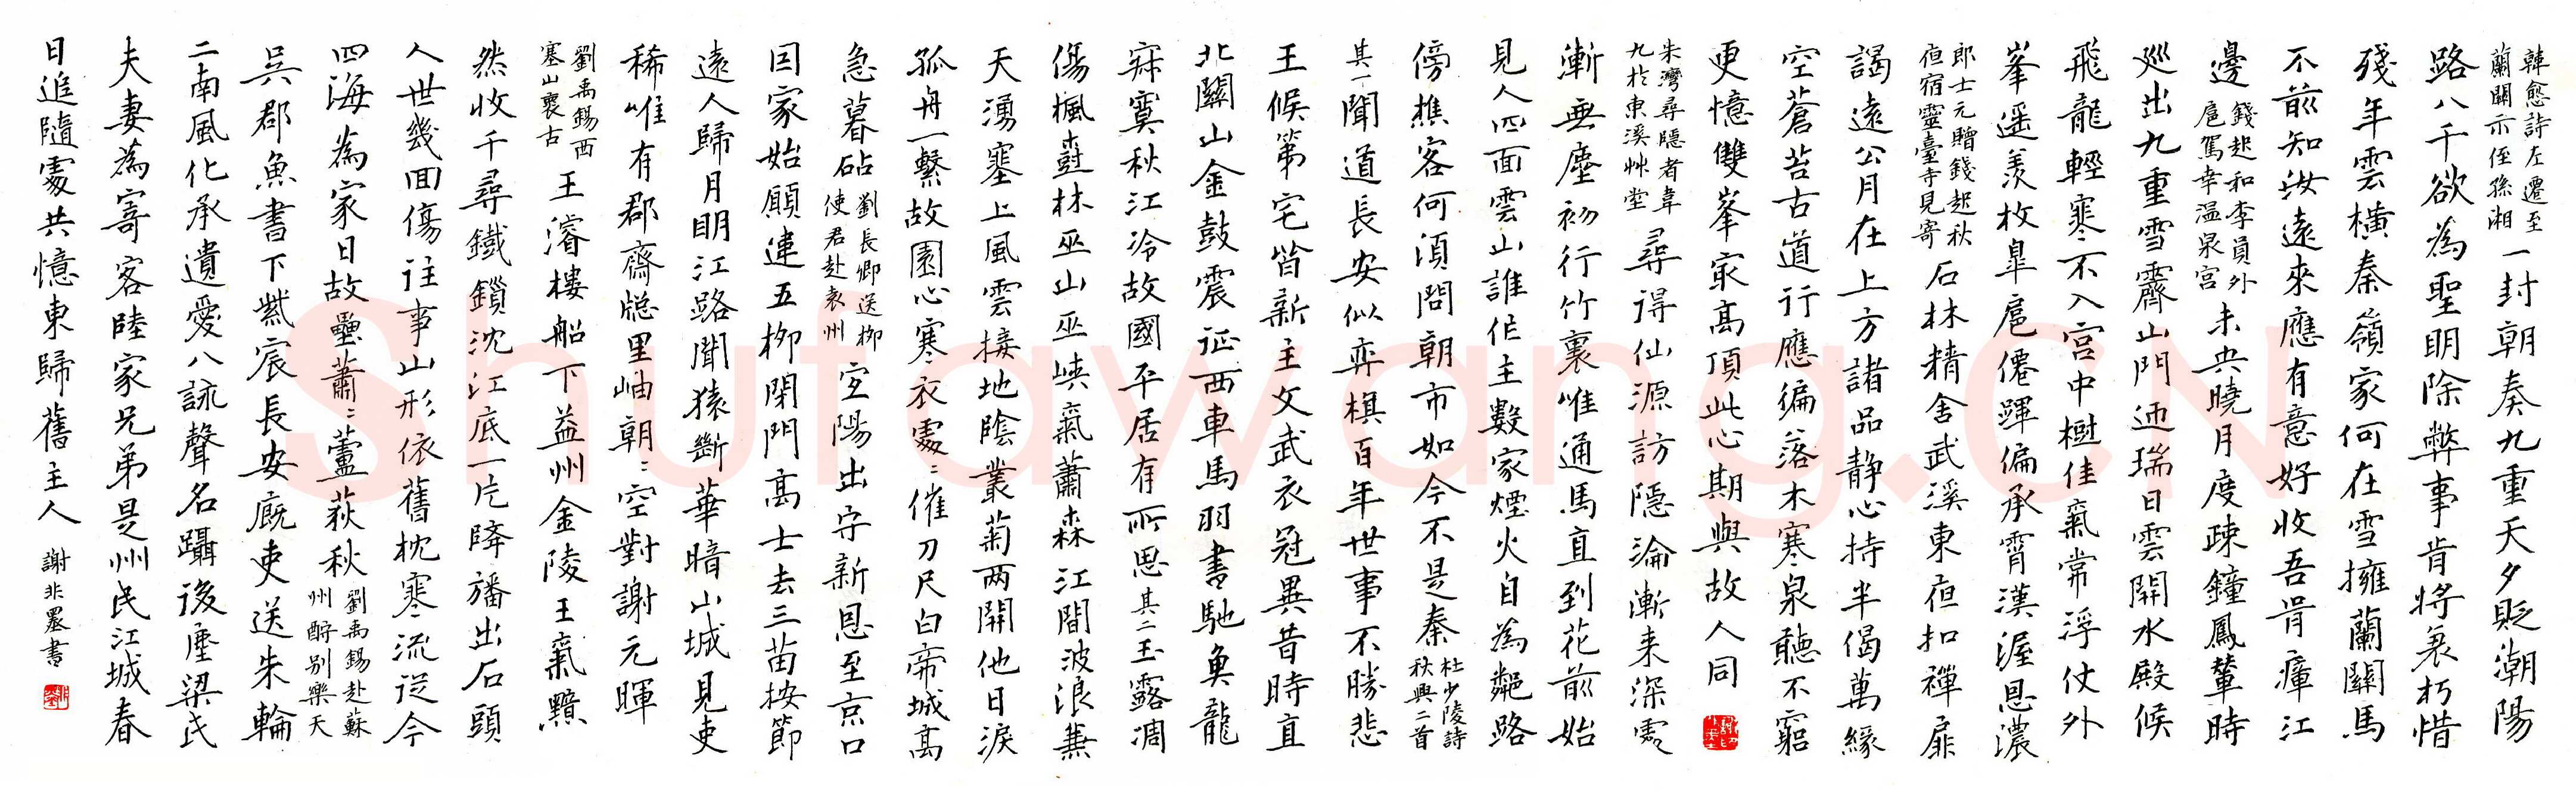 韓愈詩左遷至
蘭關示侄孫湘
一封朝奏九重天夕貶潮陽
路八千欲為聖明除弊事肯將衰朽惜
殘年雲橫秦嶺家何在雪擁蘭關馬
不前知汝遠來應有意好收吾骨瘴江
邊
錢起和李員外
扈駕幸温泉宮
未央曉月度疎鐘鳳輦時
巡出九重雪霽山門迎瑞日雲開水殿候
飛龍輕寒不入宮中樹佳氣常浮仗外
峯遥羡枚皐扈僊蹕偏承霄漢渥恩濃
郎士元贈錢起秋
夜宿靈臺寺見寄
石林精舍武溪東夜扣禪扉
謁遠公月在上方諸品静心持半偈萬緣
空蒼苔古道行應徧落木寒泉聽不窮
更憶雙峯最高頂此心期與故人同
朱灣尋隱者韋
九於東溪艸堂
尋得仙源訪隱淪漸来深處
漸無塵初行竹裏唯通馬直到花前始
見人四面雲山誰作主數家煙火自為鄰路
傍樵客何須問朝市如今不是秦
杜少陵詩
秋興二首
其一聞道長安似弈棋百年世事不勝悲
王候第宅皆新主文武衣冠異昔時直
北關山金鼓震征西車馬羽書馳魚龍
寂寞秋江冷故國平居有所思其二玉露凋
傷楓樹林巫山巫峡氣蕭森江間波浪兼
天湧塞上風雲接地陰叢菊两開他日淚
孤舟一繫故園心寒衣處〻催刀尺白帝城高
急暮砧
劉長卿送柳
使君赴袁州
宜陽出守新恩至京口
因家始願違五柳閉門高士去三苗按節
遠人歸月明江路聞猿斷華暗山城見吏
稀唯有郡齋窗里岫朝〻空對謝元暉
劉禹錫西
塞山褱古
王濬樓船下益州金陵王氣黯
然收千尋鐵鎖沈江底一片降旛出石頭
人世幾回傷往事山形依舊枕寒流從今
四海為家日故壘蕭〻蘆荻秋
劉禹錫赴蘇
州酧别樂天
吳郡魚書下紫宸長安廄吏送朱輪
二南風化承遺愛八詠聲名躡後塵梁氏
夫妻為寄客陸家兄弟是州民江城春
日追隨處共憶東歸舊主人
謝非墨書
Shufawang.CN